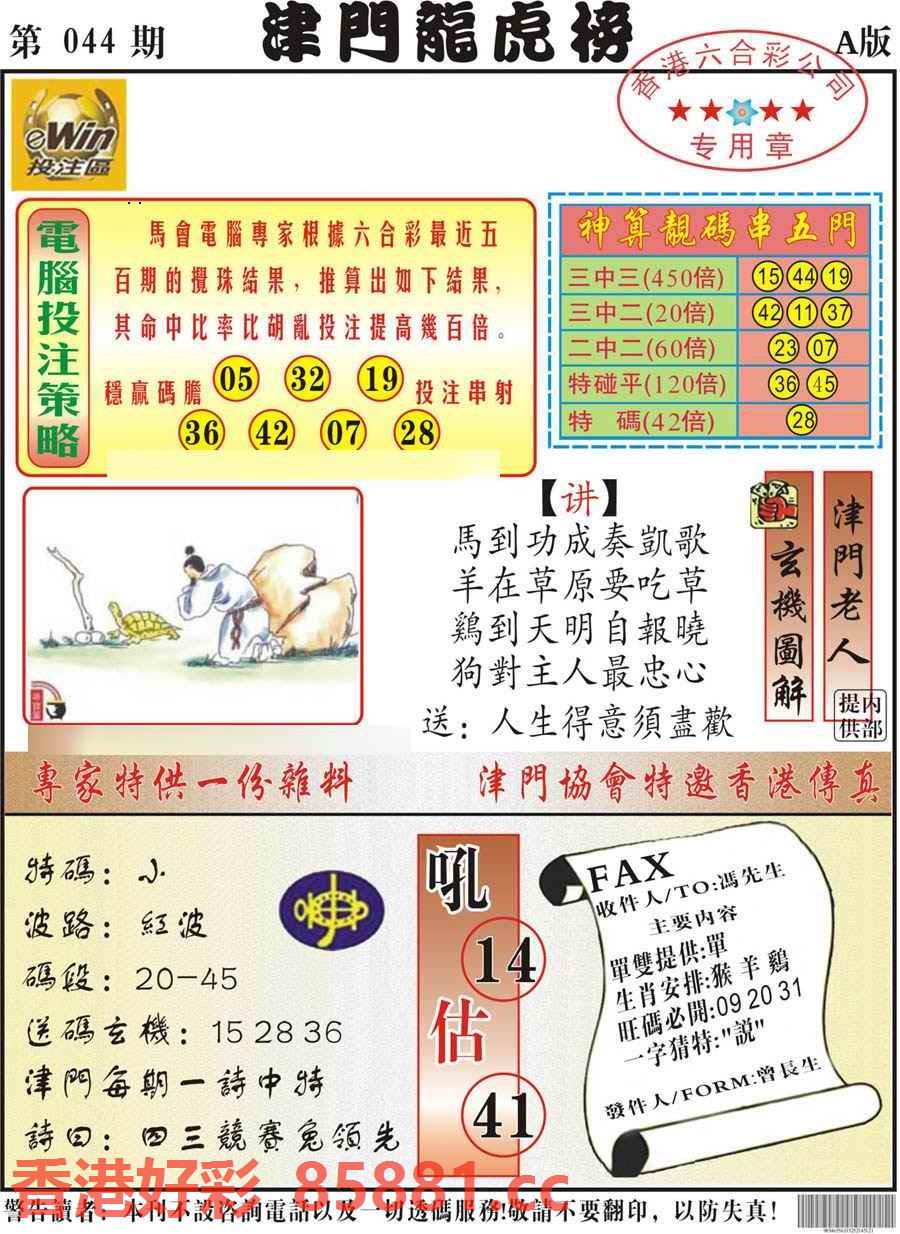 第 044 期
津門龍虎榜
A版
香港六合彩公司
专用章
eWin
投注區
電腦投注策略
馬會電腦專家根據六合彩最近五
百期的攪珠結果，推算出如下結果，
其命中比率比胡亂投注提高幾百倍。
穩贏碼膽 05 32 19 投注串射
36 42 07 28
神算靚碼串五門
三中三(450倍) 15 44 19
三中二(20倍) 42 11 37
二中二(60倍) 23 07
特碰平(120倍) 36 45
特 碼(42倍) 28
【讲】
馬到功成奏凱歌
羊在草原要吃草
鷄到天明自報曉
狗對主人最忠心
送：人生得意須盡歡
玄機圖解
津門老人
内部提供
專家特供一份雜料
津門協會特邀香港傳真
特碼：小
波路：紅波
碼段：20-45
送碼玄機：15 28 36
津門每期一詩中特
詩曰：四三競賽兔領先
吼
14
估
41
FAX
收件人/TO:馮先生
主要内容
單雙提供:單
生肖安排:猴 羊 鷄
旺碼必開:09 20 31
一字猜特:"説"
發件人/FORM:曾長生
香港好彩 85881.cc
警告讀者：本刊不設咨詢電話以及一切透碼服務!敬請不要翻印，以防失真!